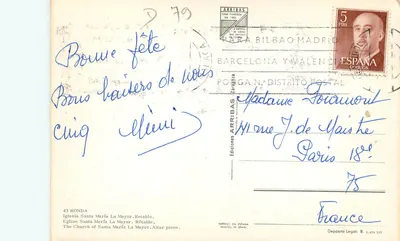 D 79
ARRIBAS
PARA BILBAO MADRID
BARCELONA Y VALENCIA
PONGA N.º DISTRITO POSTAL
5
PTAS
ESPAÑA
CORREOS
Bonne fête
Bons baisers de nous
cinq Mimi
Madame Foramont
41 rue J. de Maistre
Paris 18e
75
France
Ediciones ARRIBAS Zaragoza
43 RONDA
Iglesia Santa María La Mayor, Retablo.
Eglise Santa María La Mayor, Rétable.
The Church of Santa María La Mayor, Altar piece.
Depósito Legal: B.